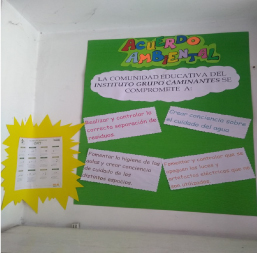 ACUERDO
AMBIENTAL
LA COMUNIDAD EDUCATIVA DEL
INSTITUTO GRUPO CAMINANTES SE
COMPROMETE A:
Realizar y controlar la
correcta separación de
residuos
Crear conciencia sobre
el cuidado del agua
Fomentar la higiene de las
aulas y crear conciencia
de cuidado de los
distintos espacios
Fomentar y controlar que se
apaguen las luces y
artefactos eléctricos que no
sean utilizados